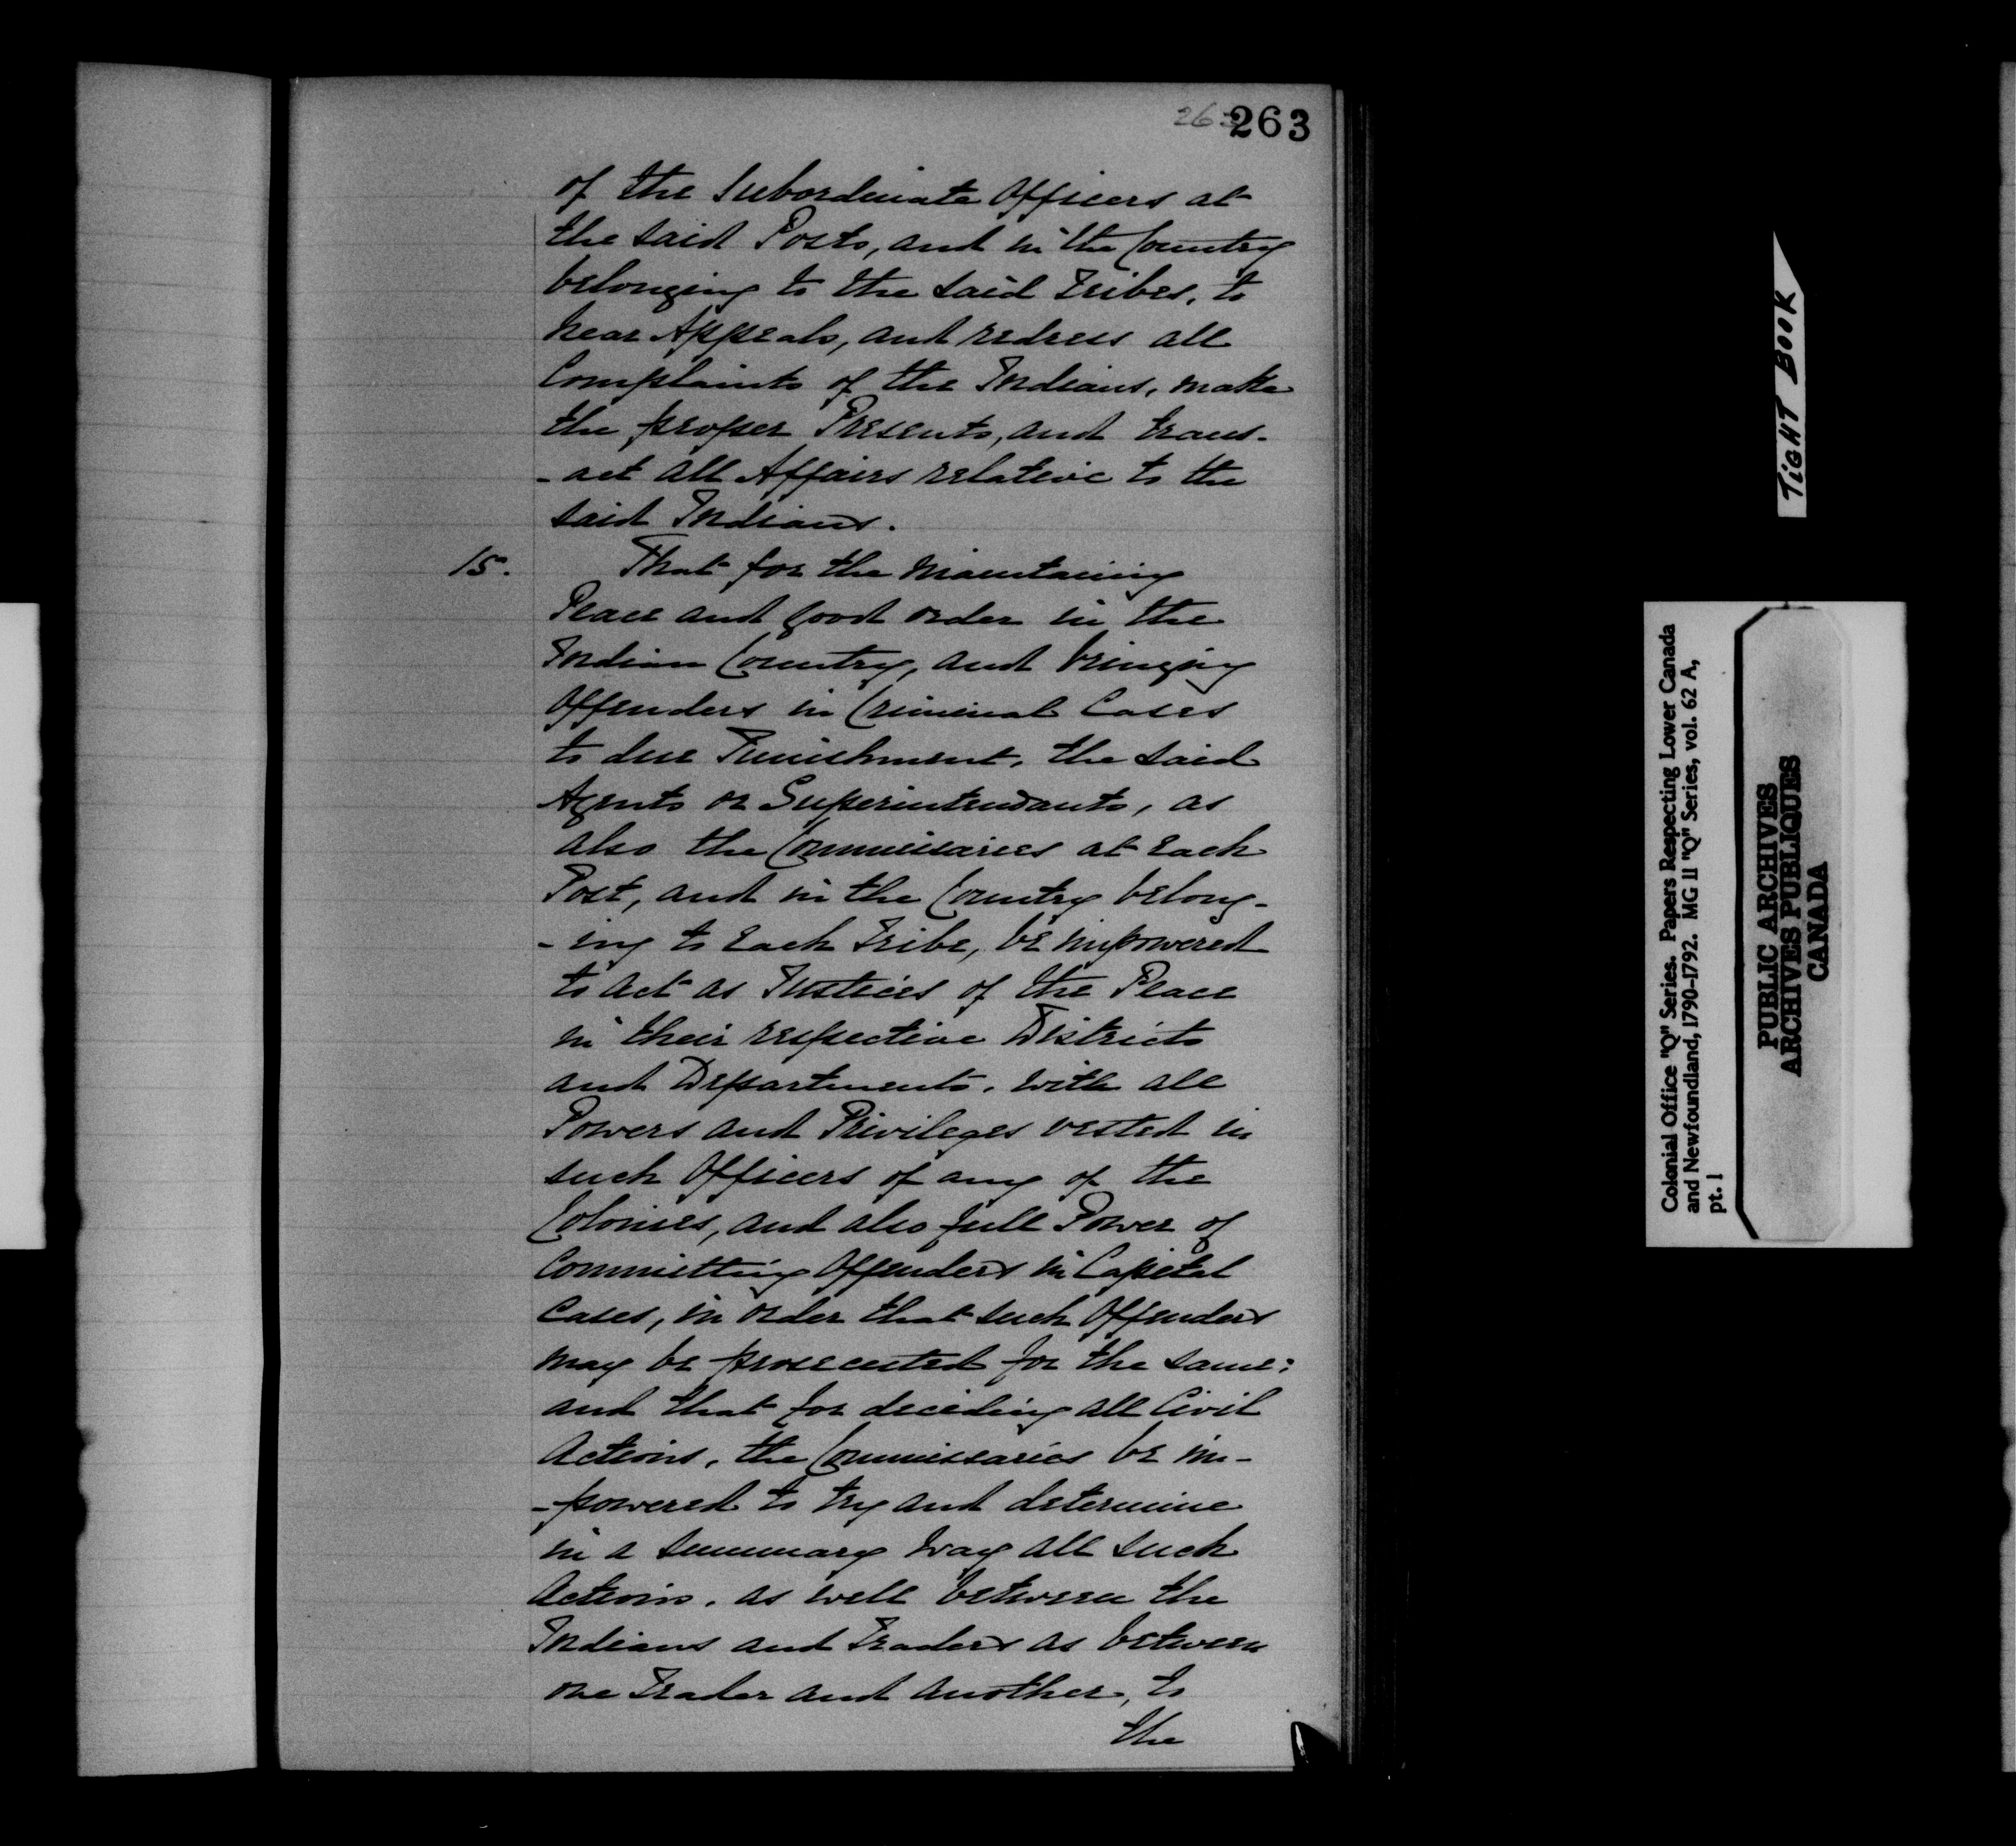 263 263
of the Subordinate Officers at
the said Posts, and in the Country
belonging to the said Tribes, to
hear Appeals, and redress all
Complaints of the Indians, make
the proper Presents, and trans-
-act all Affairs relative to the
said Indians.
15. That for the maintaining
Peace and good order in the
Indian Country, and bringing
Offenders in Criminal Cases
to due Punishment, the said
Agents or Superintendants, as
also the Commissaries at each
Post, and in the Country belong-
-ing to each Tribe, be impowered
to act as Justices of the Peace
in their respective Districts
and Departments, with all
Powers and Privileges vested in
such Officers of any of the
Colonies, and also full Power of
Committing Offenders in Capital
Cases, in order that such Offenders
may be prosecuted for the same;
and that for deciding all Civil
Actions, the Commissaries be im-
-powered to try and determine
in a summary way all such
Actions, as well between the
Indians and Traders as between
one Trader and another, to
the
TIGHT BOOK
Colonial Office "Q" Series. Papers Respecting Lower Canada
and Newfoundland, 1790-1792. MG 11 "Q" Series, vol. 62 A,
pt. 1
PUBLIC ARCHIVES
ARCHIVES PUBLIQUES
CANADA